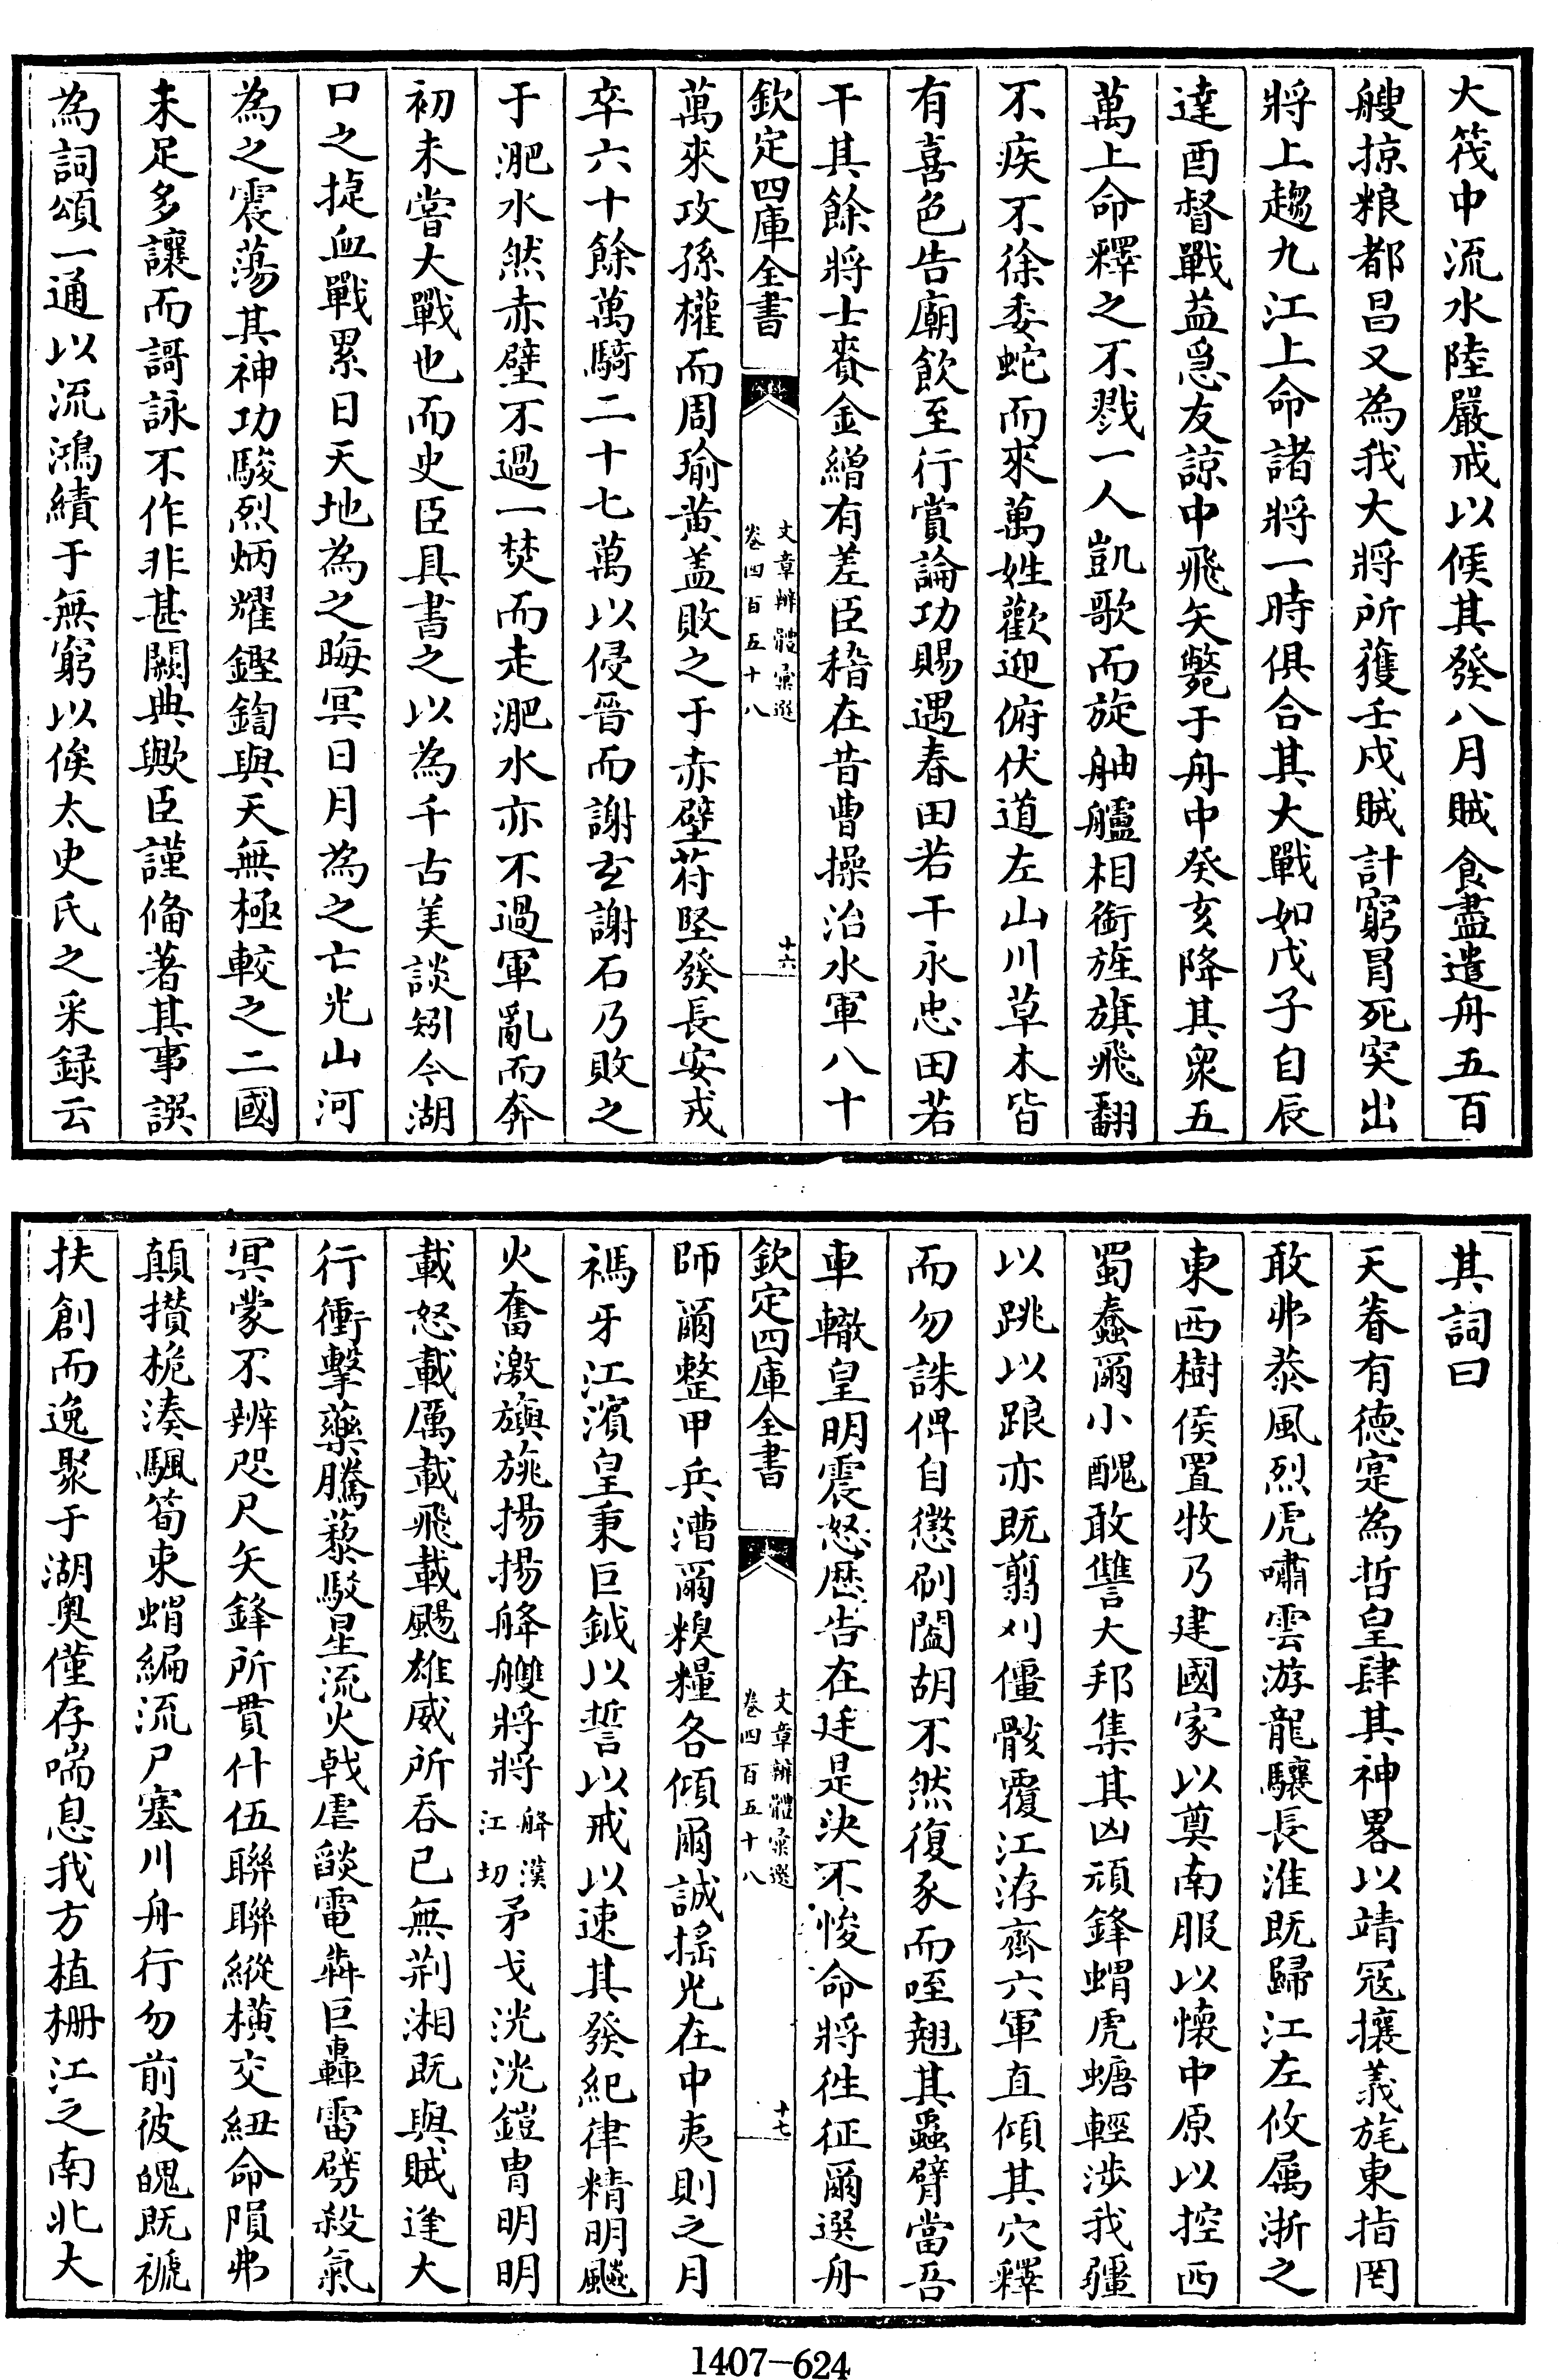 大筏中流水陸嚴戒以候其發八月賊食盡遣舟五百
艘掠粮都昌又為我大將所獲壬戍賊計窮冒死突出
將上趨九江上命諸將一時俱合其大戰如戊子自辰
達酉督戰益急友諒中飛矢斃于舟中癸亥降其衆五
萬上命釋之不戮一人凱歌而旋舳艫相銜旌旗飛翻
不疾不徐委蛇而來萬姓歡迎俯伏道左山川草木皆
有喜色告廟飲至行賞論功賜遇春田若干永忠田若
干其餘將士賚金繒有差臣稽在昔曹操治水軍八十
欽定四庫全書
文章辨體彙選
卷四百五十八
十六
萬來攻孫權而周瑜黃盖敗之于赤壁苻堅發長安戎
卒六十餘萬騎二十七萬以侵晉而謝玄謝石乃敗之
于淝水然赤壁不過一焚而走淝水亦不過軍亂而奔
初未嘗大戰也而史臣具書之以為千古美談矧今湖
口之捷血戰累日天地為之晦冥日月為之亡光山河
為之震蕩其神功駿烈炳耀鏗鍧與天無極較之二國
未足多讓而謌詠不作非甚闕典歟臣謹備著其事譔
為詞頌一通以流鴻績于無窮以俟太史氏之采録云
其詞曰
天眷有德寔為哲皇肆其神畧以靖冦攘義旄東指罔
敢弗恭風烈虎嘯雲游龍驤長淮既歸江左攸属浙之
東西樹侯置牧乃建國家以奠南服以懷中原以控西
蜀蠢爾小醜敢讐大邦集其凶頑鋒蝟虎螗輕涉我疆
以跳以踉亦既翦刈僵骸覆江洊齊六軍直傾其穴釋
而勿誅俾自懲刷闔胡不然復豕而咥翹其蝨臂當吾
車轍皇明震怒歷告在廷是決不悛命將徃征爾選舟
欽定四庫全書
文章辨體彙選
卷四百五十八
十七
師爾整甲兵漕爾糗糧各傾爾誠搖光在中夷則之月
禡牙江濱皇秉巨鉞以誓以戒以速其發紀律精明飈
火奮激旟旐揚揚舽艭將將舽漢江切矛戈洸洸鎧胄明明
載怒載厲載飛載颺雄威所吞已無荊湘既與賊逢大
行衝擊藥騰藜駮星流火戟虐燄電犇巨轟雷劈殺氣
冥蒙不辨咫尺矢鋒所貫什伍聯聯縱橫交紐命隕弗
顛攢桅湊颿筍束蝟編流尸塞川舟行勿前彼魄既褫
扶創而逸聚于湖奥僅存喘息我方植柵江之南北大
1407-624